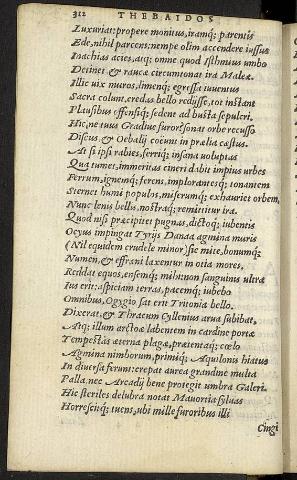 312 THEBAIDOS
Luxuriat: propere monitus, iramq; parentis
Ede, nihil parcens: nempe olim accendere iussus
Inachias acies, atq; omne quod Isthmius umbo
Detinet & raucæ circumtonat ira Maleæ.
Illic uix muros, limenq; egressa iuuentus
Sacra colunt, credas bello redijsse, tot instant
Plausibus offensiq; sedent ad busta sepulcri.
Hic, ne tuus Gradiue furor? sonat orbe recusso
Discus & Oebalij coeunt in prælia cæstus.
At si ipsi rabies, ferriq; insana uoluptas
Qua tumet, immeritas cineri dabit impius urbes
Ferrum, ignemq; ferens, implorantesq; tonantem
Sternet humi populos, miserumq; exhauriet orbem,
Nunc lenis bellis, nostraq; remittitur ira.
Quod nisi præcipitet pugnas, dictoq; iubentis
Ocyus impingat Tyrijs Danaa agmina muris
(Nil equidem crudele minor) sit mite, bonumq;
Numen, & effrani laxentur in otia mores,
Reddat equos, ensemq; mihi: non sanguinis ultra
Ius erit: aspiciam terras, pacemq; iubebo
Omnibus, Ogygio sat erit Tritonia bello.
Dixerat, & Thracum Cyllenius arua subibat,
Atq; illum arctoæ labentem in cardine portæ
Tempestas æterna plagæ, prætentaq; cœlo
Agmina nimborum, primiq; Aquilonis hiatus
In diuersa ferunt: crepat aurea grandine multa
Palla, nec Arcadij bene protegit umbra Galeri.
Hic steriles delubra notat Mauortia syluas
Horrescitq; tuens, ubi mille furoribus illi
Cingi